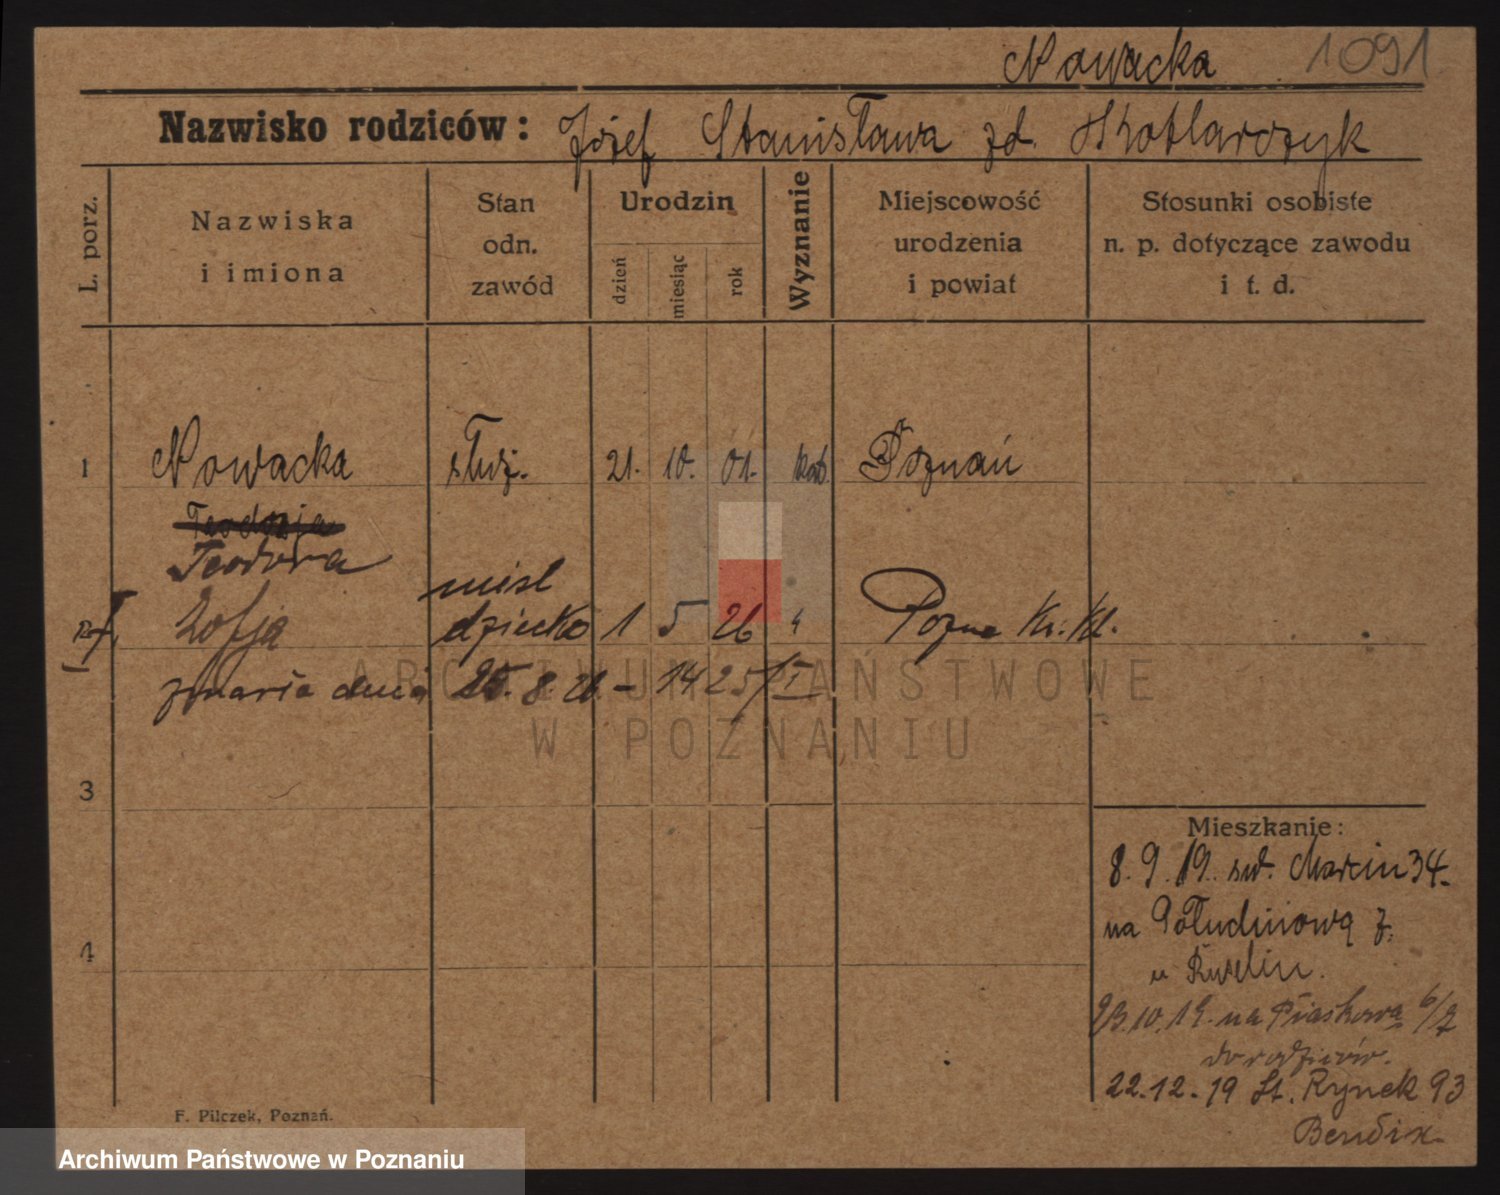 Nowacka 1091
Nazwisko rodziców: Józef Stanisława zd. Kotlarczyk
L. porz.
Nazwiska
i imiona
Stan
odn.
zawód
Urodzin
dzień
miesiąc
rok
Wyznanie
Miejscowość
urodzenia
i powiat
Stosunki osobiste
n. p. dotyczące zawodu
i t. d.
1 Nowacka służ. 21. 10. 01. kat. Poznań
Teodozja
Teodora
nieśl
Zofja dziecko 1 5 26 " Pozna Kr. Kl.
zmarła dnia 25. 8. 26. - 1425/I
3
4
Mieszkanie:
8. 9. 19. św. Marcin 34.
na Południową 7.
u
23.10.19. na Piaskową 6/7
do rodziców.
22.12.19 St. Rynek 93
Bendix.
F. Pilczek, Poznań.
ARCHIWUM PAŃSTWOWE
W POZNANIU
Archiwum Państwowe w Poznaniu